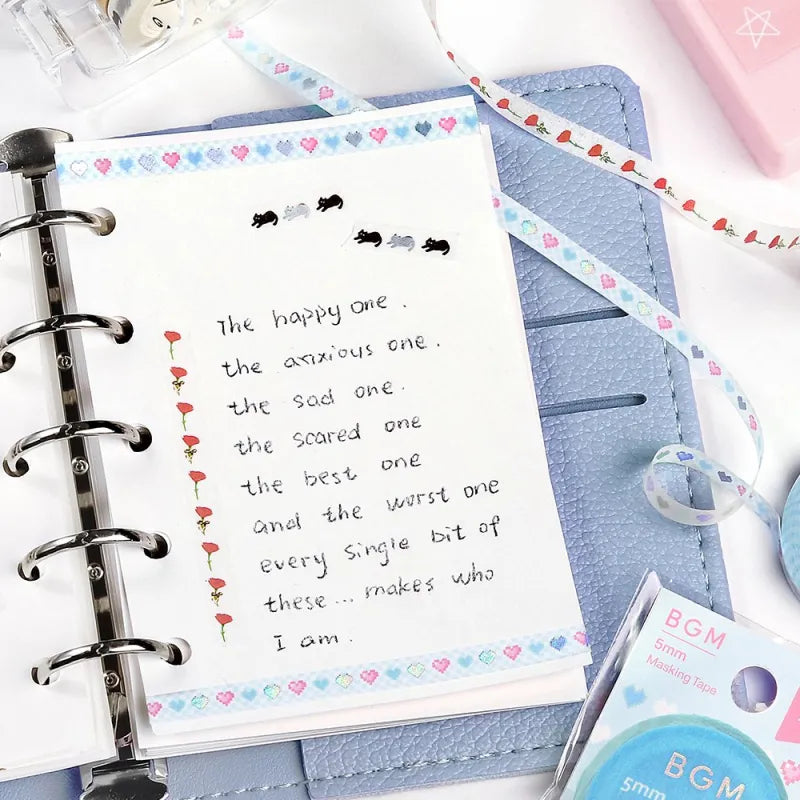 The happy one.
the anxious one.
the sad one.
the scared one
the best one
and the worst one
every single bit of
these... makes who
I am.
BGM
5mm
Masking Tape
BGM
5mm